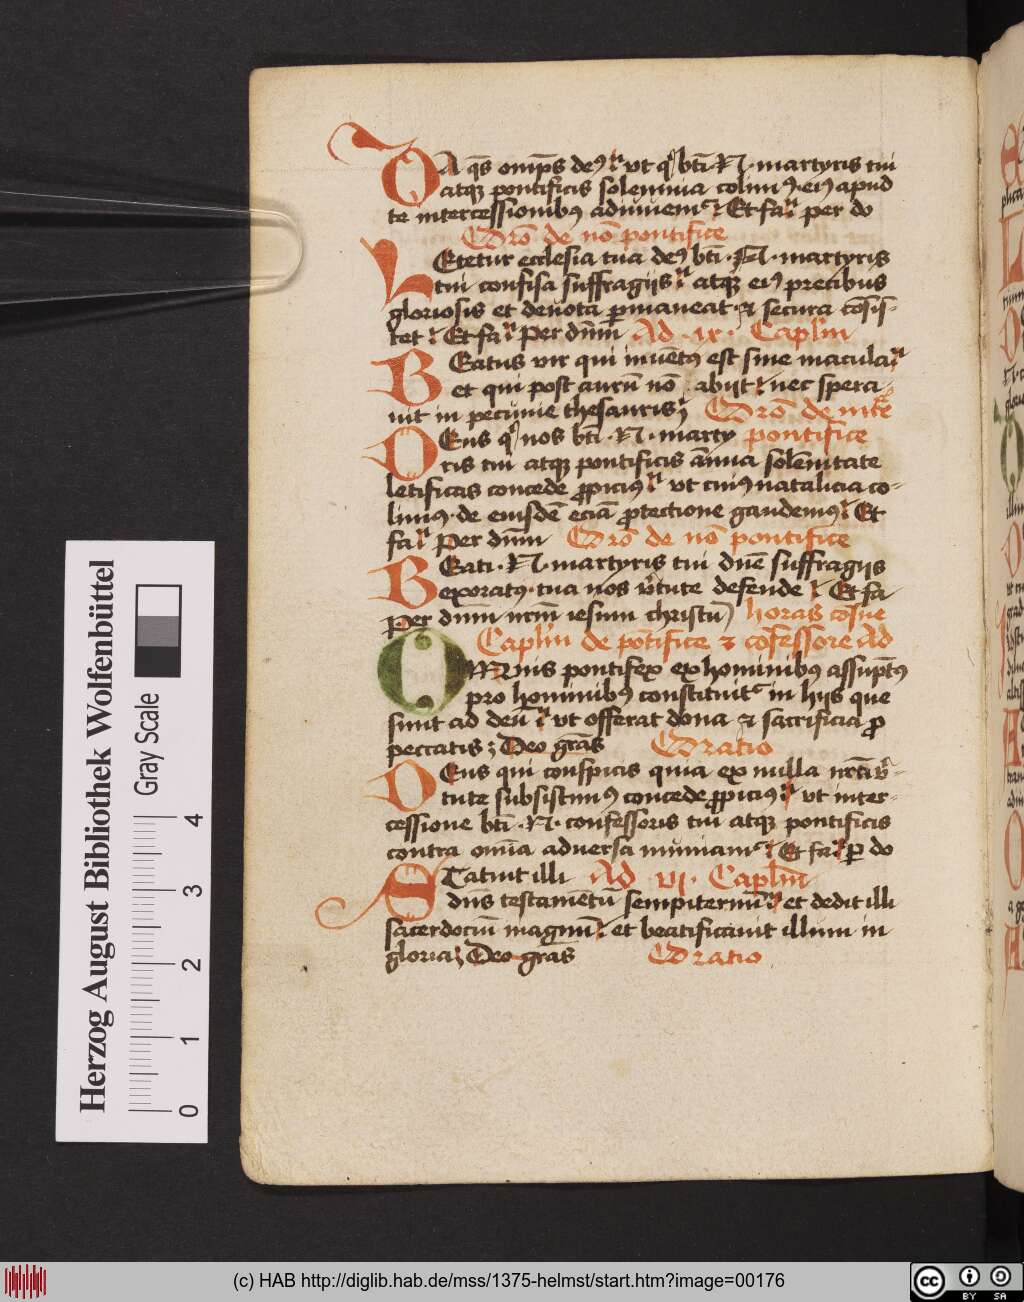 DA qs̄ omp̄s deꝰ ut qͥ bti N. martyris tui
atqꝫ pontificis solennia colimꝰ eiꝰ apud
te intercessionibꝰ adiuuemͬ Et fa per do
Oro͞ de no͞ pontifice
LEtetur ecclesia tua deꝰ bti .N. martyris
tui confisa suffragijs atqꝫ eiꝰ precibus
gloriosis et deuota ꝑmaneat ⁊ secura co͞sis-
tet Et fa Per dn͞m Ad .ix. Capl'm
BEatus vir qui inuētꝰ est sine macula
et qui post aurū nō abijt nec spera
uit in pecunie thesauris Oro͞ de
DEus qͥ nos bti .N. marty pontifice
ris tui atqꝫ pontificis ānua solēnitate
letificas concede ꝓpiciꝰ ut cuiꝰ natalicia co-
limꝰ de eiusdē eciā ꝓtectione gaudeamꝰ Et
fa Per dn͞m Oro͞ de no͞ pontifice
BEati .N. martyris tui dn͞e suffragijs
exoratꝰ tua nos v̄tute defende Et fa
Per dn͞m nr͞m iesum christū horas
Capl'm de po͞tifice ⁊ co͞fessore Ad
OMnis pontifex ex hominibꝰ assūptꝰ
pro hominibꝰ constituitͬ in hijs que
sunt ad deū ut offerat dona ⁊ sacrificia ꝓ
peccatis Deo gr͞as Oratio
DEus qui conspicis quia ex nulla nr͞a v̄-
tute subsistimꝰ concede ꝓpiciꝰ ut inter-
cessione bti .N. confessoris tui atqꝫ pontificis
contra om͞ia aduersa muniamͬ Et fa ꝑ do
STatuit illi Ad .vi. Capl'm
dn͞s testamētū sempiternū et dedit illi
sacerdociū magnū et beatificauit illum in
gloria Deo gr͞as Oratio
Herzog August Bibliothek Wolfenbüttel
Gray Scale
0 1 2 3 4
(c) HAB http://diglib.hab.de/mss/1375-helmst/start.htm?image=00176
cc BY SA